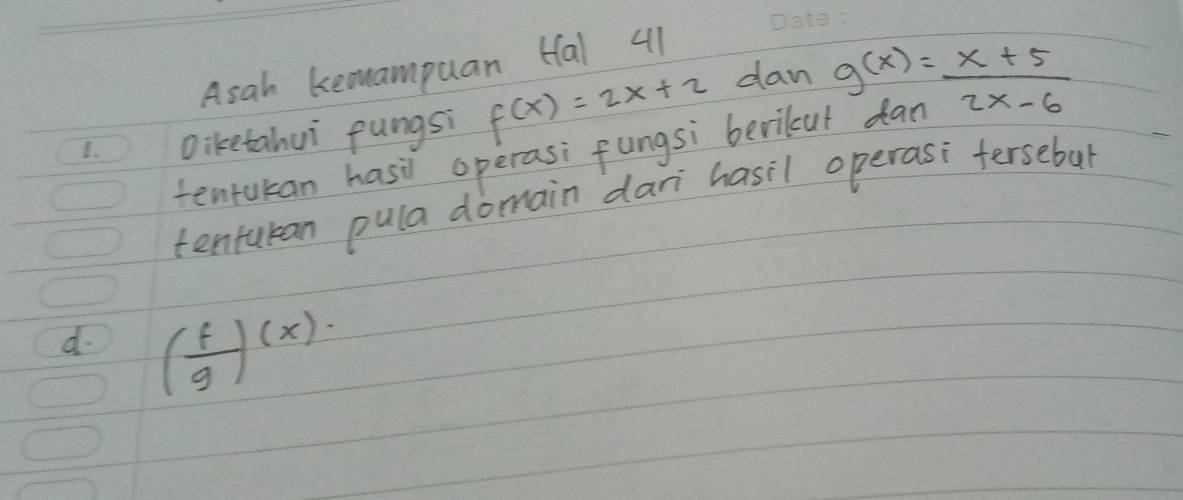 Date :
Asah kemampuan Hal 41
1. Diketahui fungsi f(x) = 2x + 2 dan g(x) = x + 5 / 2x - 6
tentukan hasil operasi fungsi berikut dan
tentukan pula domain dari hasil operasi tersebut
d. (f/g)(x).